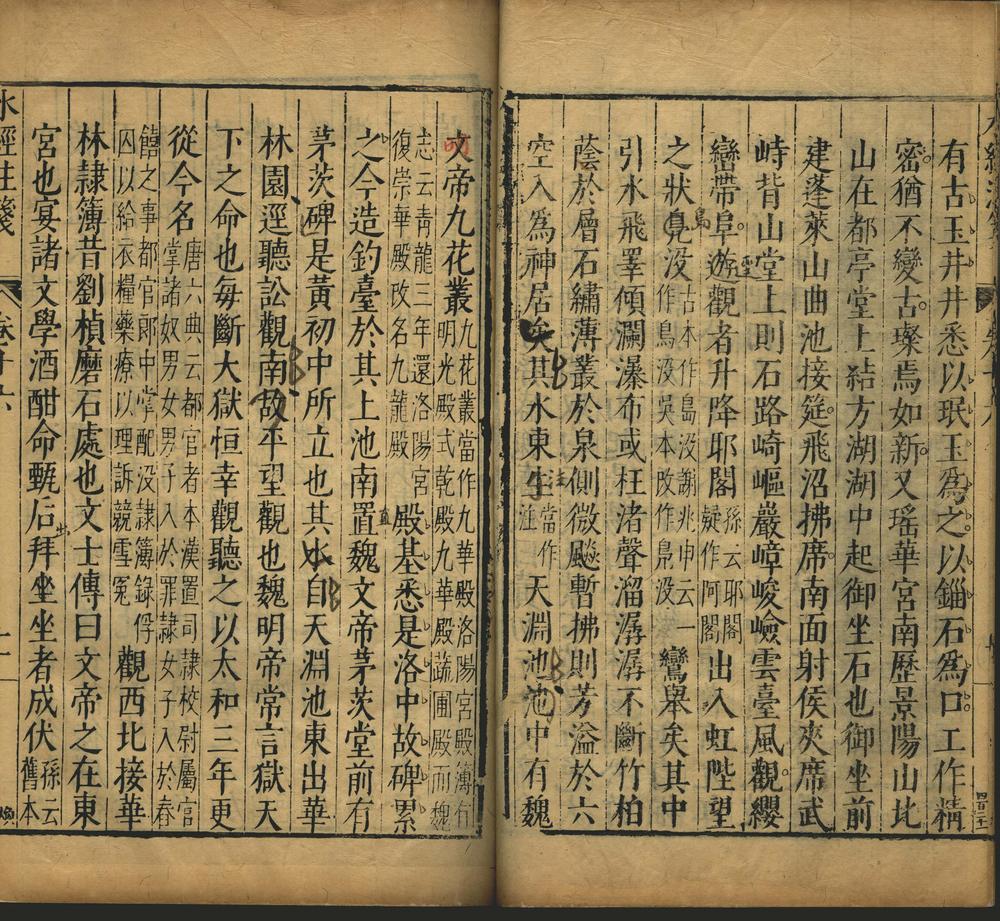 有古玉井井悉以珉玉為之以錙石為口工作精
密猶不變古璨焉如新又瑤華宮南歷景陽山北
山在都亭堂上結方湖湖中起御坐石也御坐前
建蓬萊山曲池接筵飛沼拂席南面射侯夾席武
峙背山堂上則石路崎嶇巖嶂峻嶮雲臺風觀纓
巒帶阜遊觀者升降耶閣孫云耶閣疑作阿閣出入虹陛望
之狀鳧没古本作島没謝兆申云一作鳥没吳本改作鳧没鸞舉矣其中
引水飛睪傾瀾瀑布或枉渚聲溜潺潺不斷竹柏
蔭於層石繡薄叢於泉側微飈暫拂則芳溢於六
空入為神居矣其水東生當作注天淵池池中有魏
文帝九花叢九花叢當作九華殿洛陽宮殿簿有明光殿式乾殿九華殿蔬圃殿而魏
志云青龍三年還洛陽宮復崇華殿改名九龍殿殿基悉是洛中故碑累
之今造釣臺於其上池南置魏文帝茅茨堂前有
茅茨碑是黃初中所立也其水自天淵池東出華
林園逕聽訟觀南故平望觀也魏明帝常言獄天
下之命也每斷大獄恒幸觀聽之以太和三年更
從今名唐六典云都官者本漢置司隷校尉屬官堂諸奴男女男子入於罪隷女子入於舂
饎之事都官郎中掌配没隷簿錄俘囚以給衣糧藥療以理訴競雪冤觀西北接華
林隷簿昔劉楨磨石處也文士傳曰文帝之在東
宮也宴諸文學酒酣命甄后拜坐坐者成伏孫云舊本
水經注箋
卷十六
十一